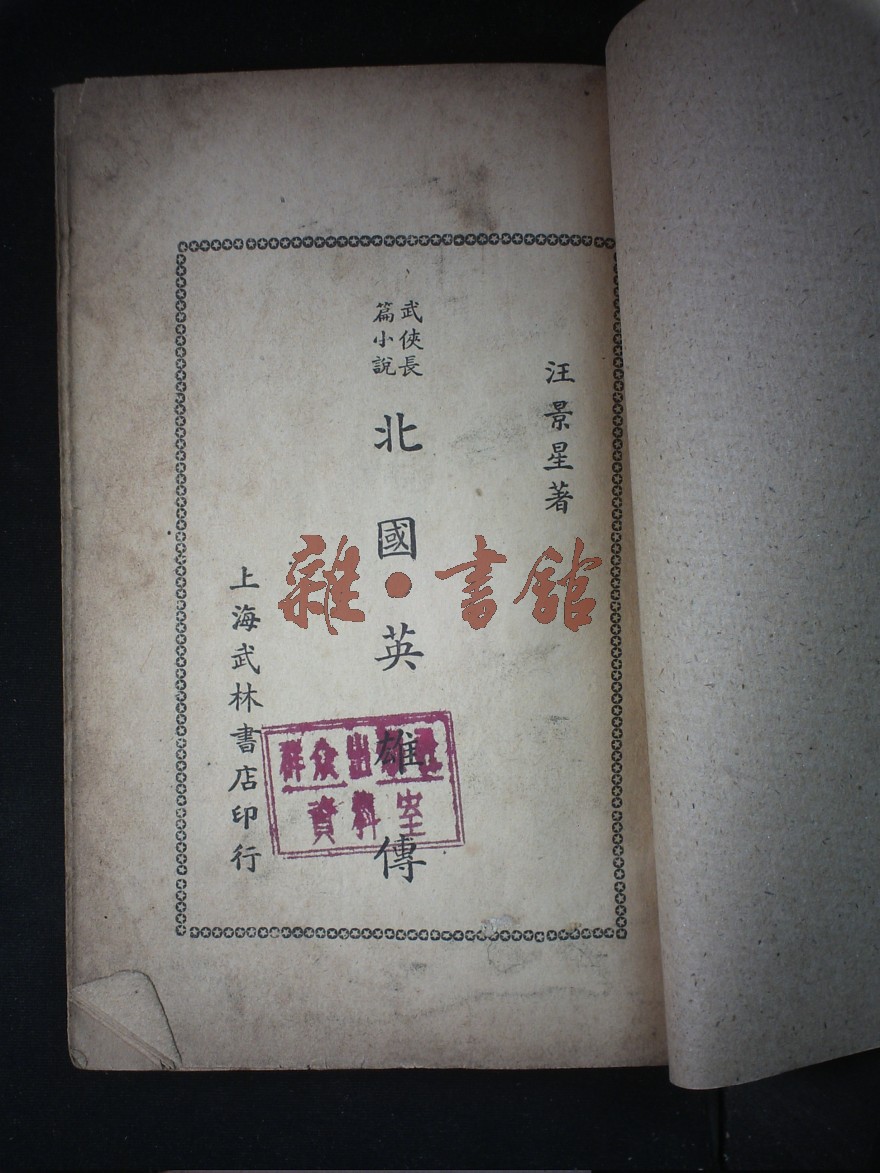 汪景星著
武俠長
篇小說
北國英雄傳
上海武林書店印行
雜·書館
群众出版社
資料室